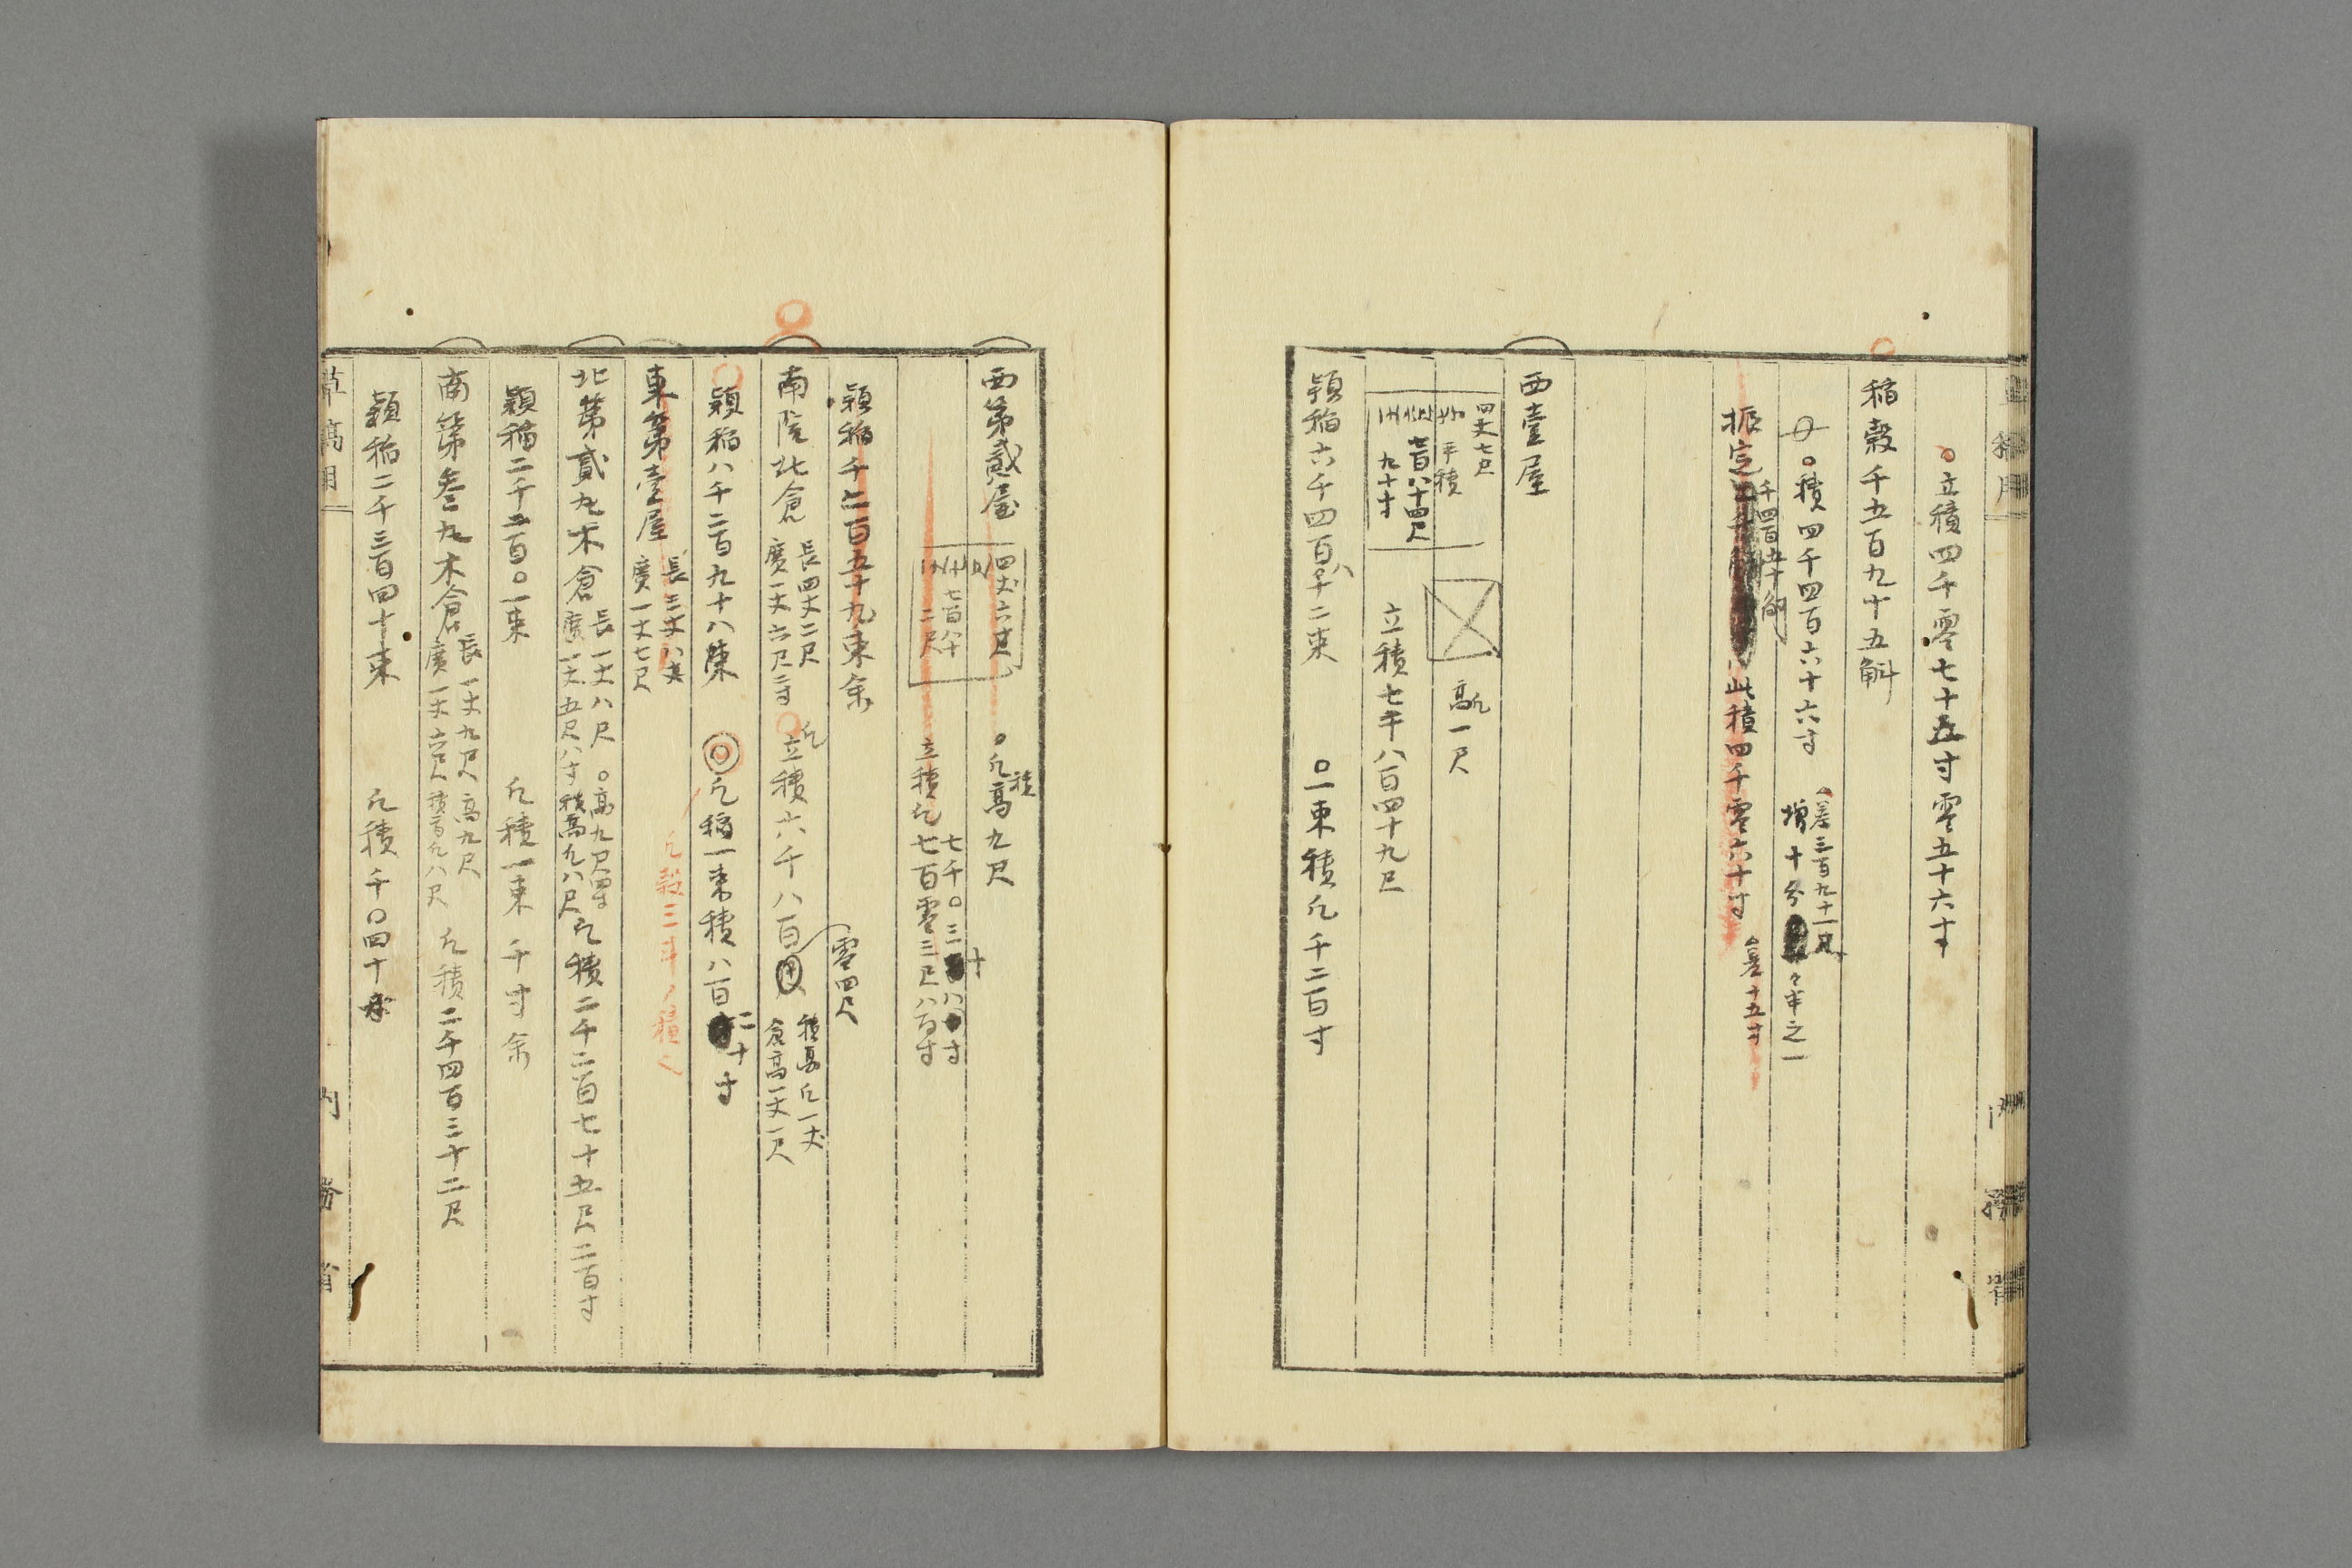 ○立積四千零七十五寸零五十六寸
稲穀千五百九十五斛
○積四千四百六十六寸
差三百九十一尺
増十分
々半之一
振定
千四百五十斛
此積四千零六十寸
差十五寸
西壹屋
四丈七尺
平積
七百八十四尺
九十寸
高凡一尺
立積七千八百四十九尺
穎稲六千四百八十二束
○一束積凡千二百寸
西第貳屋
四丈六尺
七百八十
二尺
○凡積高九尺
立積凡
七千○三十八寸
七百零三尺八百寸
穎稲千二百五十九束余
南院北倉
長四丈二尺
廣一丈六尺二寸
凡立積六千八百
零四尺
積高凡一丈
倉高一丈一尺
穎稲八千二百九十八束
◎凡稲一束積八百二十寸
東第壹屋
長三丈八尺
廣一丈七尺
凡穀三斗ノ積
北第貳丸木倉
長一丈八尺
廣一丈五尺八寸
○高九尺四寸
積高凡八尺
凡積二千二百七十五尺二百寸
穎稲二千二百○一束
凡積一束千寸余
南第叁丸木倉
長一丈九尺
廣一丈六尺
高九尺
積高凡八尺
凡積二千四百三十二尺
穎稲二千三百四十束
凡積千○四十寸
草稿用
内務省